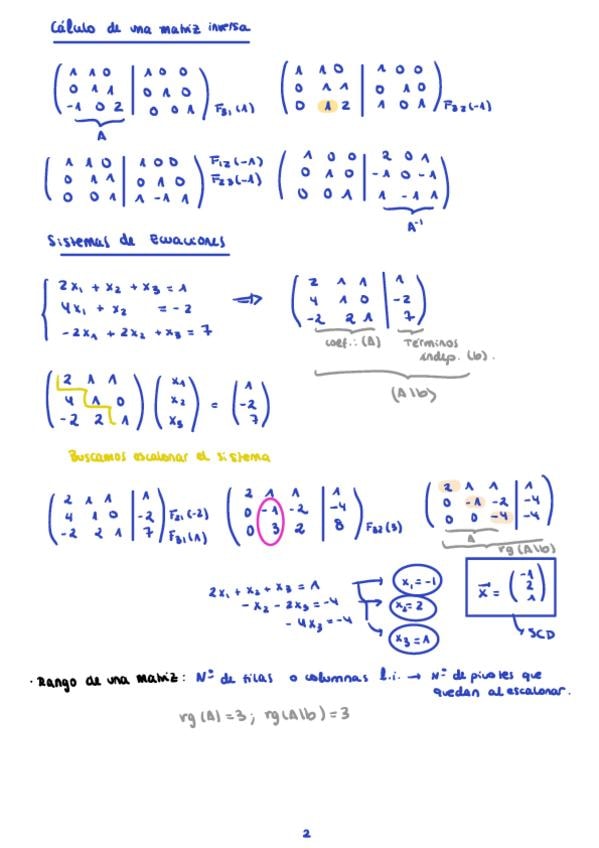 Cálculo de una matriz inversa
1 1 0 | 1 0 0
0 1 1 | 0 1 0
-1 0 2 | 0 0 1 F31(1)
A
1 1 0 | 1 0 0
0 1 1 | 0 1 0
0 1 2 | 1 0 1 F32(-1)
1 1 0 | 1 0 0 F12(-1)
0 1 1 | 0 1 0 F23(-1)
0 0 1 | 1 -1 1
1 0 0 | 2 0 1
0 1 0 | -1 0 -1
0 0 1 | 1 -1 1
A⁻¹
Sistemas de Ecuaciones
2x₁ + x₂ + x₃ = 1
4x₁ + x₂ = -2
-2x₁ + 2x₂ + x₃ = 7
⇒
2 1 1 | 1
4 1 0 | -2
-2 2 1 | 7
coef.: (A)
Términos
indep. (b).
(A|b)
2 1 1 x₁ 1
4 1 0 x₂ = -2
-2 2 1 x₃ 7
Buscamos escalonar el sistema
2 1 1 | 1
4 1 0 | -2 F21(-2)
-2 2 1 | 7 F31(1)
2 1 1 | 1
0 -1 -2 | -4
0 3 2 | 8 F32(3)
2 1 1 | 1
0 -1 -2 | -4
0 0 -4 | -4
A
rg(A|b)
2x₁ + x₂ + x₃ = 1
-x₂ - 2x₃ = -4
-4x₃ = -4
x₁ = -1
x₂ = 2
x₃ = 1
x⃗ = (-1 2 1)
SCD
· Rango de una matriz: Nº de filas o columnas l.i. → Nº de pivotes que
quedan al escalonar.
rg(A) = 3; rg(A|b) = 3
2